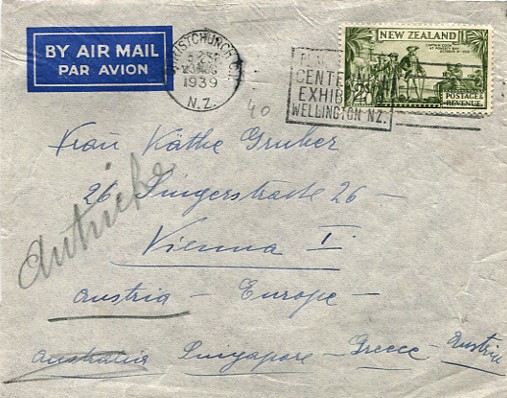 BY AIR MAIL
PAR AVION
CHRISTCHURCH
1939
N.Z.
CENTEN
EXHIB
WELLINGTON N.Z.
NEW ZEALAND
CAPTAIN COOK
AT POVERTY BAY
POSTAGE &
REVENUE
40
Frau Käthe Gruber
26 Singerstrasse 26 –
Vienna I
Austria – Europe –
Australia Singapore – Greece – Austria